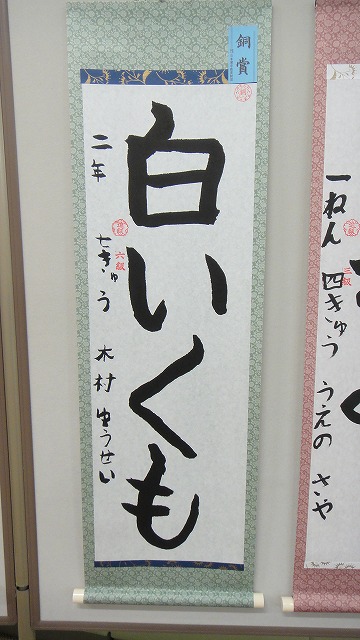 銅賞
白いくも
二年 七きゅう 木村 ゆうせい
六級
一ねん 四きゅう うえの さや
三級